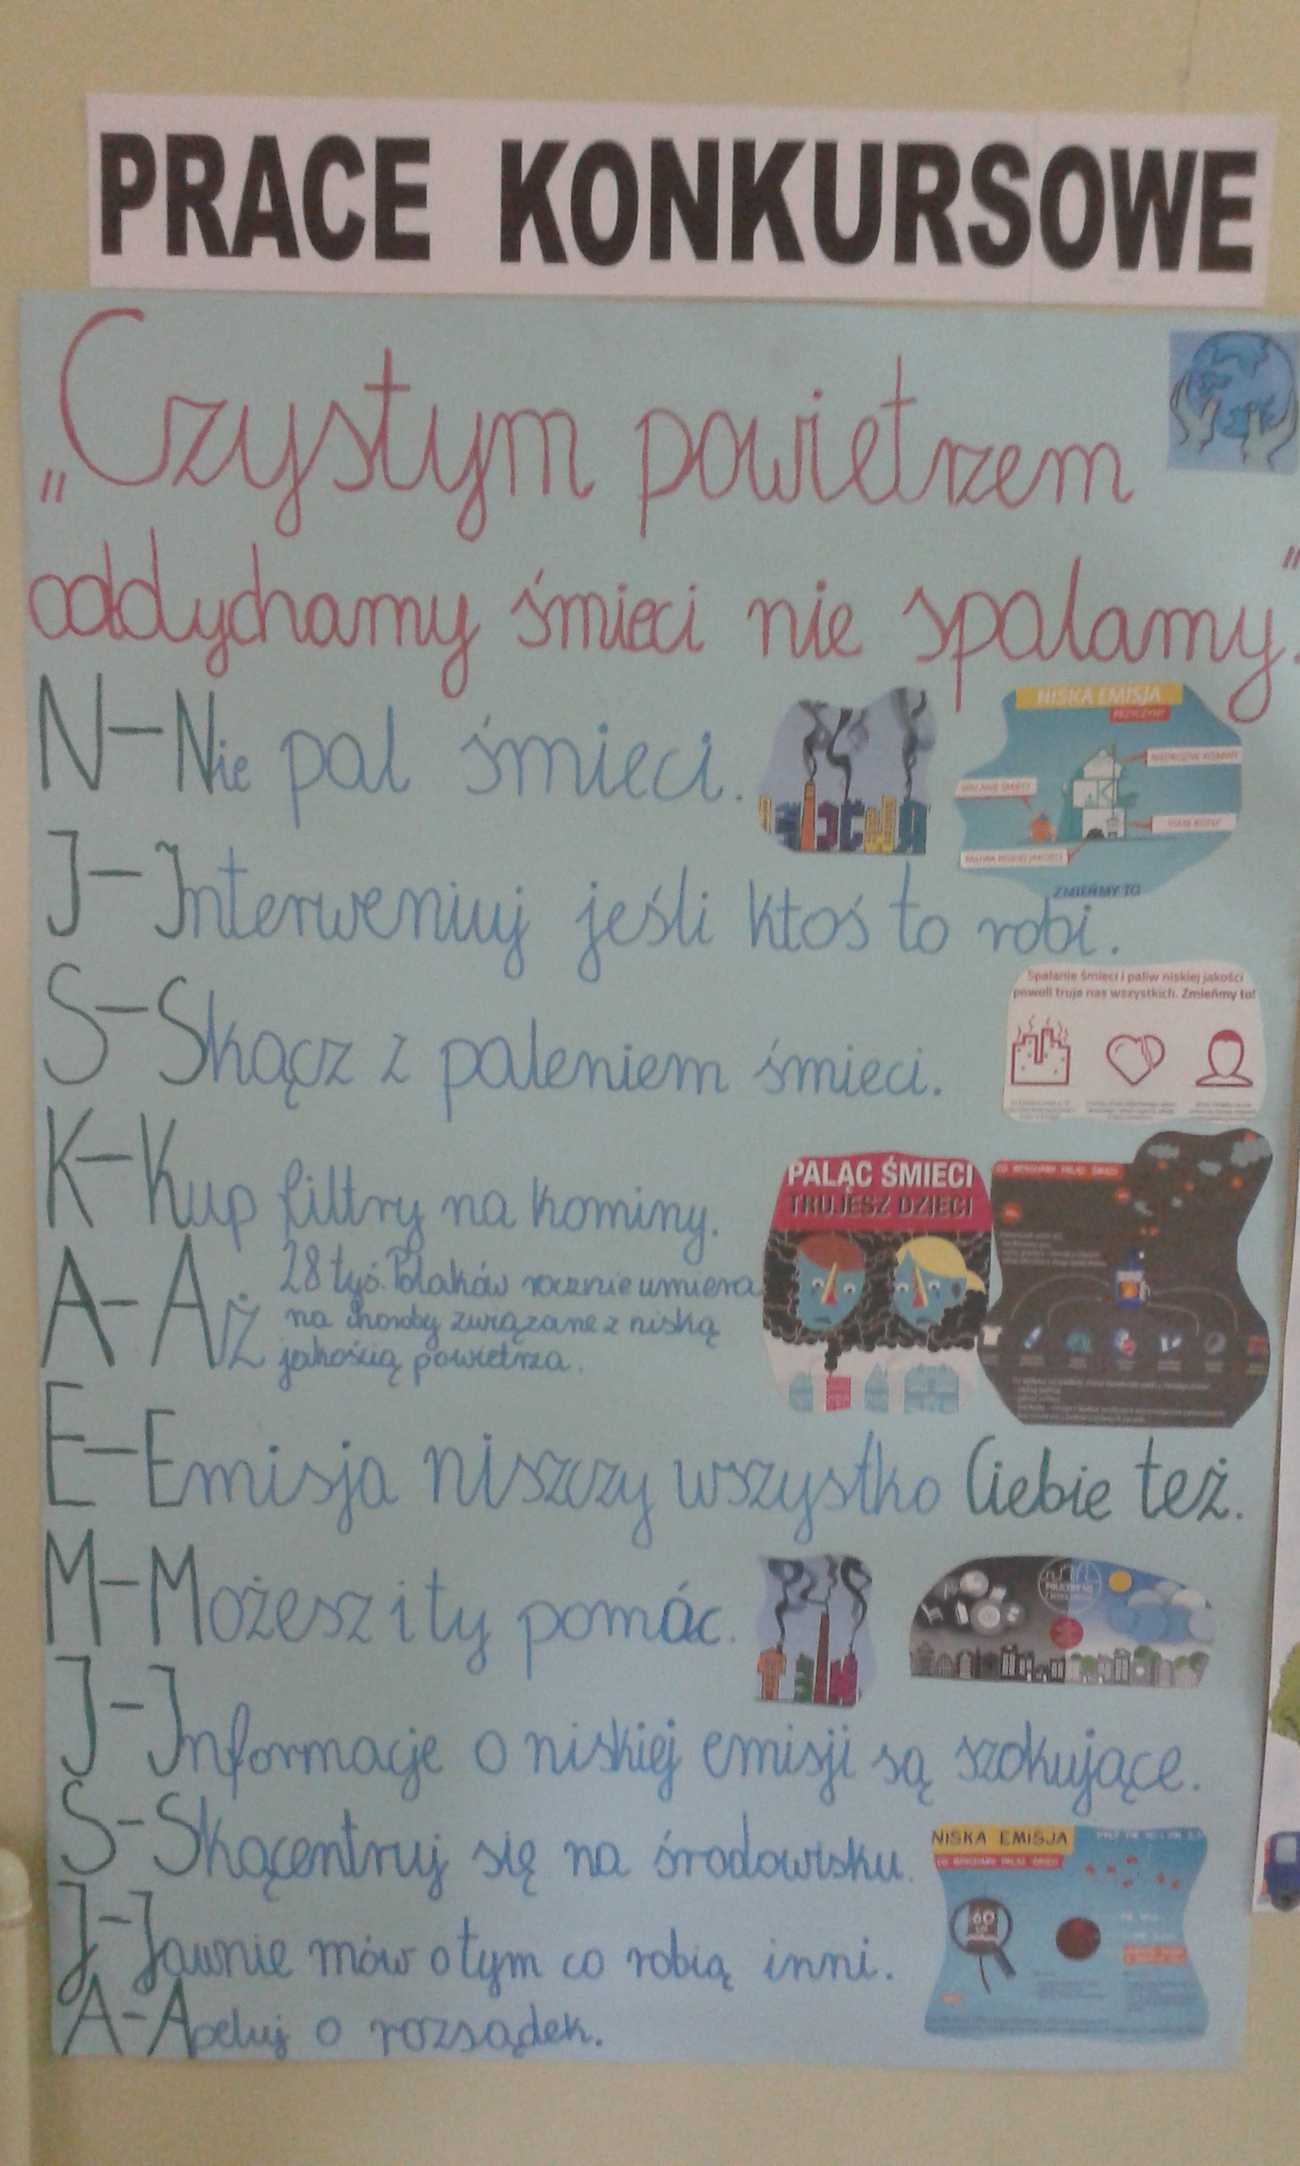 PRACE KONKURSOWE
„Czystym powietrzem
oddychamy śmieci nie spalamy."
N-Nie pal śmieci.
NISKA EMISJA
ZMIEŃMY TO
I-Interweniuj jeśli ktoś to robi.
Spalanie śmieci i paliw niskiej jakości
powoli truje nas wszystkich. Zmieńmy to!
S-Skącz z paleniem śmieci.
K-Kup filtry na kominy.
PALĄC ŚMIECI
TRUJESZ DZIECI
A-Aż 28 tyś. Polaków rocznie umiera
na choroby związane z niską
jakością powietrza.
E-Emisja niszczy wszystko Ciebie też.
M-Możesz i ty pomóc.
I-Informacje o niskiej emisji są szokujące.
S-Skącentruj się na środowisku.
NISKA EMISJA
60
J-Jawnie mów o tym co robią inni.
A-Apeluj o rozsądek.